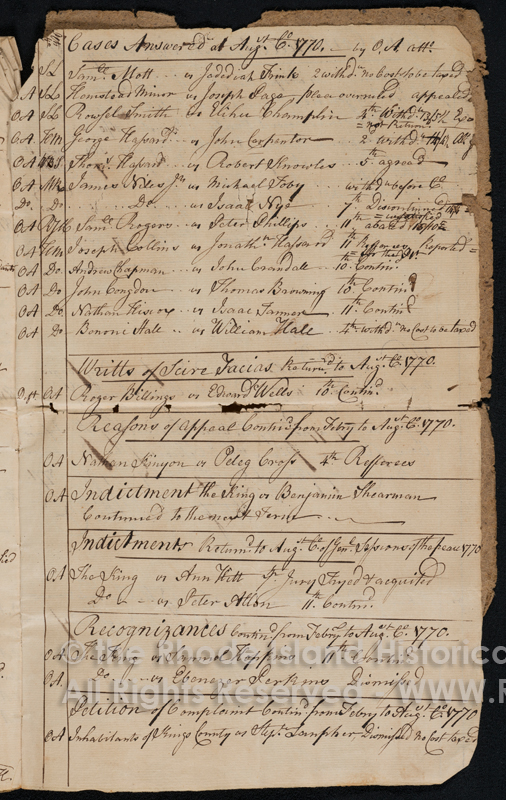 Cases Answered at Augst Ct 1770. by O A atto
SL Saml Mott vs Jedediah Frink 2 withd no Cost to be taxed
O A SL Homstead Minor vs Joseph Page plea overruled appealed
O A SL Rowsel Smith vs Elihu Champlin 4th Withd
= not Return
O A George Hazard vs John Carpenter 2 withd
O A Thos Hazard vs Robert Knowles 5th agreed
O A James Niles Jr vs Michael Toby withd before Ct
Do Do vs Isaac Nye 7th Discontinued
O A Saml Rogers vs Peter Phillips 11th abated
O A Joseph Collins vs Jonathn Hazard 11th Refferees Reported
O A Do Andrew Chapman vs John Crandall 10th Contind
O A Do John Congdon vs Thomas Browning 10th Contind
O A Do Nathan Hiscox vs Isaac Tanner 11th Contind
O A Do Bononi Hall vs William Hall 4th withd no Cost to be taxed
Writts of Scire Facias Returnd to Augst Ct 1770.
O A Roger Billings vs Edward Wells 10th Contind
Reasons of Appeal Contind from Febry to Augst Ct 1770.
O A Nathan Kinyon vs Peleg Cross 4th Refferees
O A Indictment the King vs Benjamin Shearman
Continued to the next Term
Indictments Returnd to Augst Ct of Genl Sessions of the peace 1770
O A The King vs Ann Hill Jury Tryed & acquited
Do vs Peter Alton 11th Contind
Recognizances Contind from Febry to Augst Ct 1770.
O A The King vs Samuel Hopkins 11th Contind
O A Do vs Ebenezer Perkins Dismissed
Petition of Complaint Contind from Febry to Augst Ct 1770
O A Inhabitants of Kings County vs Lanpher Dismissed no Cost taxed
© The Rhode Island Historica
All Rights Reserved WWW.R